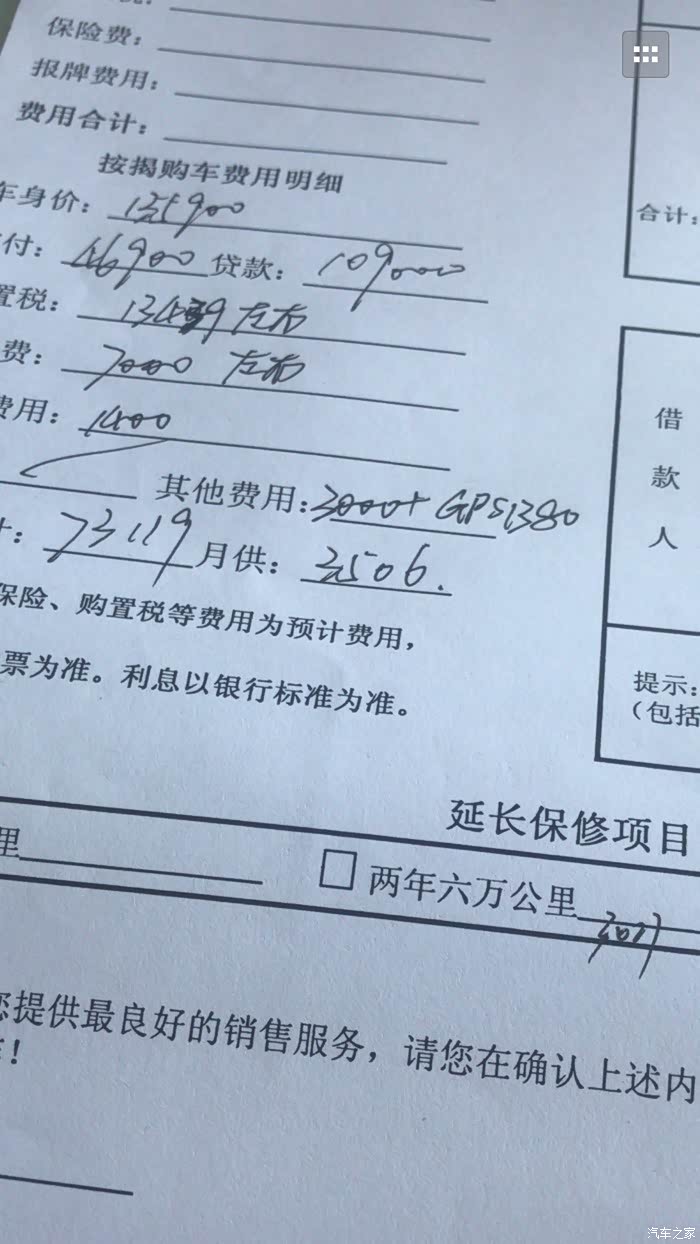 保险费：
报牌费用：
费用合计：
按揭购车费用明细
车身价：155900
付：46900 贷款：109000
置税：13439左右
费：7000 左右
费用：1400
其他费用：3000+ GPS1380
计：73119 月供：3506.
保险、购置税等费用为预计费用，
票为准。利息以银行标准为准。
合计：
借
款
人
提示：
（包括
延长保修项目
里
两年六万公里
您提供最良好的销售服务，请您在确认上述内
！
汽车之家